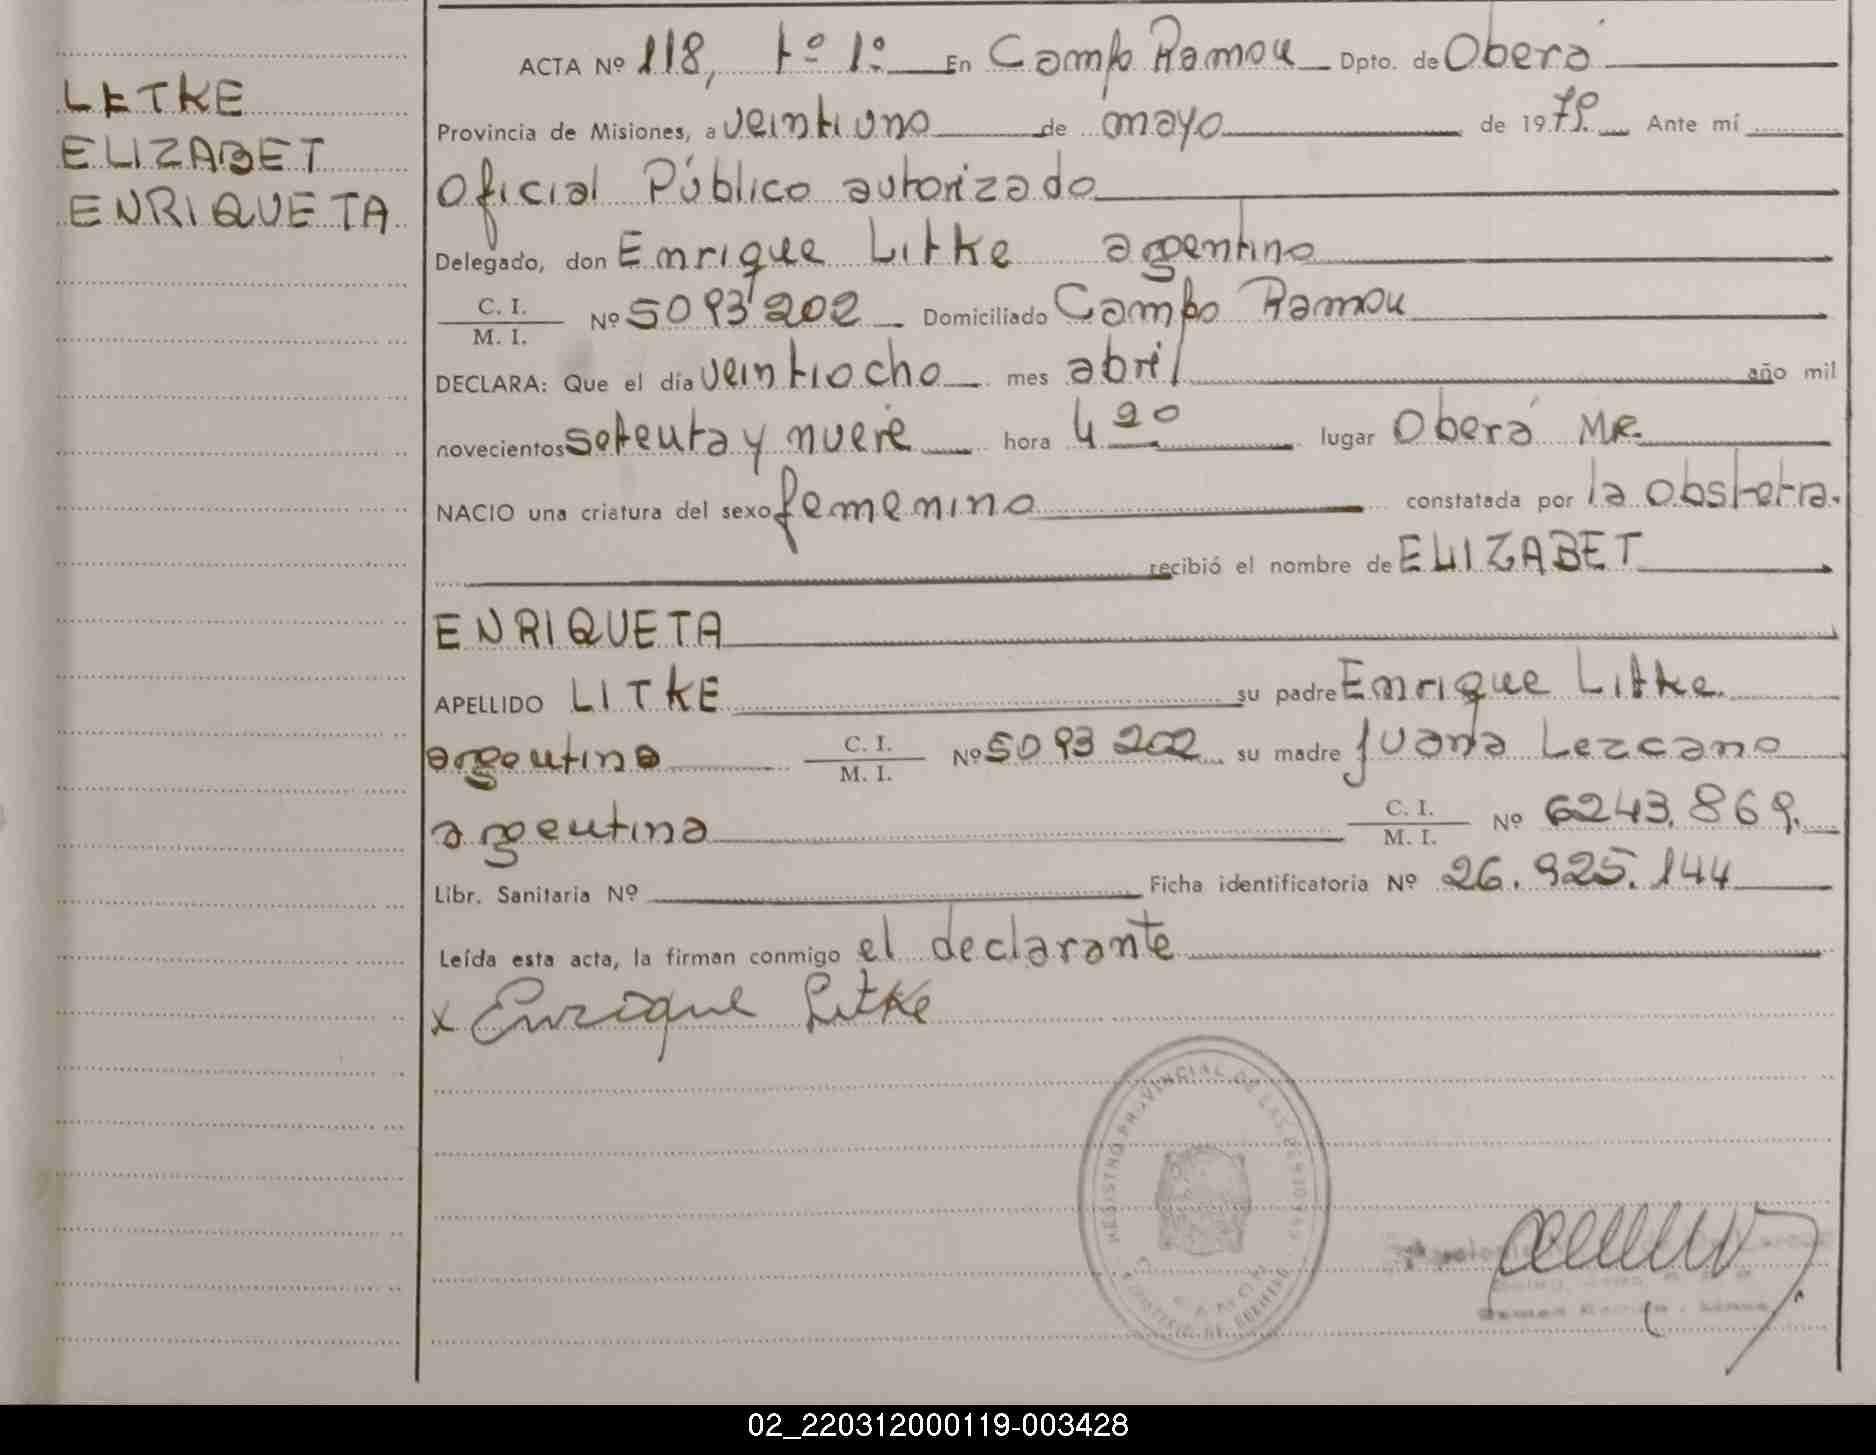 LETKE
ELIZABET
ENRIQUETA
ACTA Nº 118, tº 1º En Campo Ramou Dpto. de Oberá
Provincia de Misiones, a veintiuno de mayo de 1979. Ante mí
Oficial Público autorizado
Delegado, don Enrique Litke argentino
C. I.
M. I.
Nº 5093202 Domiciliado Campo Ramou
DECLARA: Que el día veintiocho mes abril año mil
novecientos setenta y nueve hora 4 20 lugar Oberá Ms.
NACIO una criatura del sexo femenino constatada por la obstetra.
recibió el nombre de ELIZABET
ENRIQUETA
APELLIDO LITKE su padre Enrique Litke.
argentino C. I.
M. I.
Nº 5093202 su madre Juana Lezcano
argentina C. I.
M. I.
Nº 6243.869.
Libr. Sanitaria Nº Ficha identificatoria Nº 26.925.144
Leída esta acta, la firman conmigo el declarante
x Enrique Litke
REGISTRO PROVINCIAL DE LAS PERSONAS
02_220312000119-003428